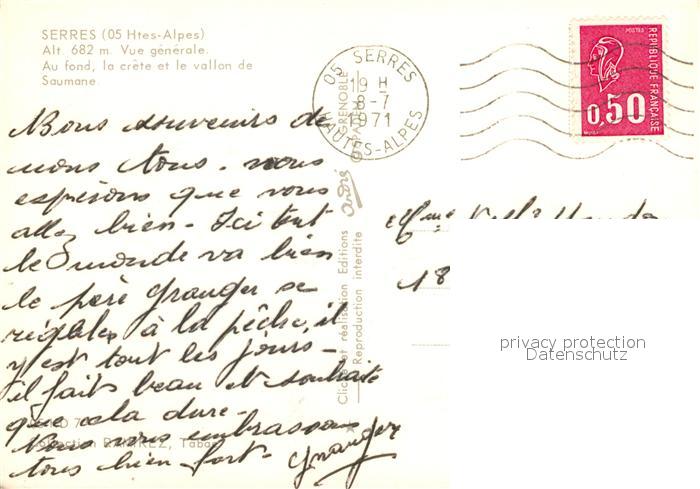 SERRES (05 Htes-Alpes)
Alt. 682 m. Vue générale.
Au fond, la crête et le vallon de
Saumane.
05 SERRES
19 H
8-7
1971
HAUTES-ALPES
POSTES
REPUBLIQUE FRANÇAISE
0,50
Bons souvenirs de
nous tous. nous
espérons que vous
allez bien - Ici tout
le monde va bien
le père Granger se
régale à la pêche, il
y est tout les jours -
il fait beau et souhaite
que cela dure -
Nous vous embrassons
tous bien fort -
Granger
GRENOBLE
André
Cliché et réalisation Editions
Reproduction interdite
RAMIREZ, Tabac
Mme
18
privacy protection
Datenschutz